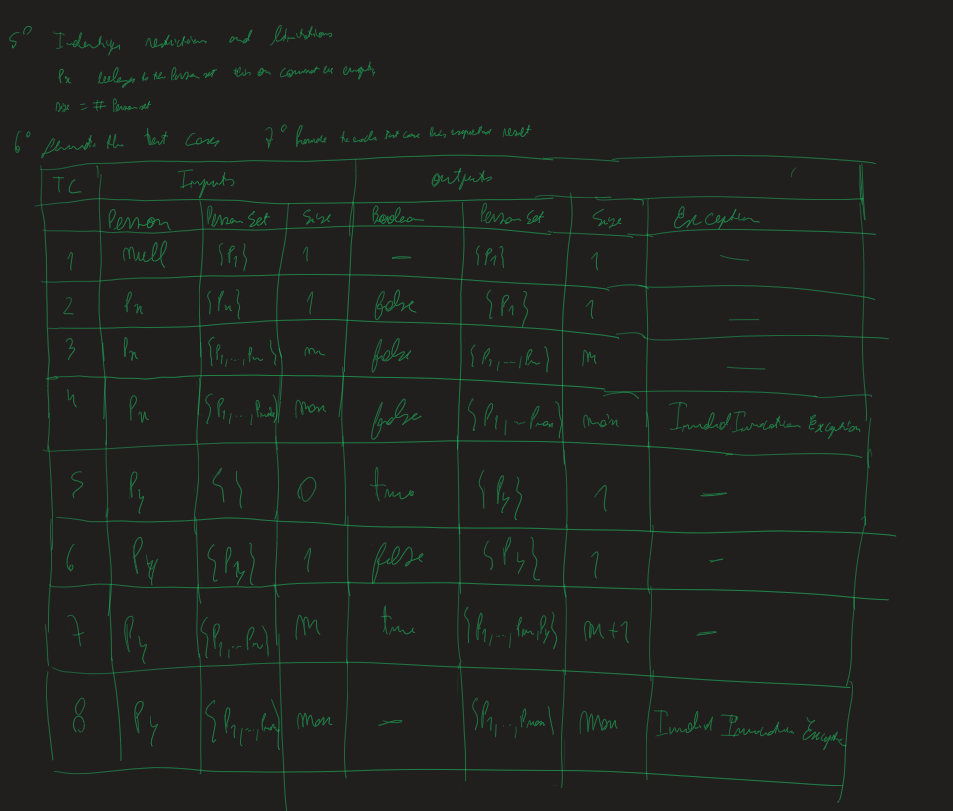 5º Identify restrictions and limitations
Px belongs to the Person set this on cannot be empty
size = # Person set
6º the test cases 7º Provide to each test case his expected result
TC Inputs Outputs
Person Person Set Size Boolean Person Set Size Exception
1 null {P1} 1 — {P1} 1 —
2 Px {Px} 1 false {P1} 1 —
3 Px {P1,...,Pn} n false {P1,...,Pn} n —
4 Px {P1,...,Pmax} max false {P1,...Pmax} max Invalid Invocation Exception
5 Py {} 0 true {Py} 1 —
6 Py {Py} 1 false {Py} 1 —
7 Py {P1,...Pn} n true {P1,...,Pn,Py} n+1 —
8 Py {P1,...,Pmax} max — {P1,...,Pmax} Max Invalid Invocation Exceptio